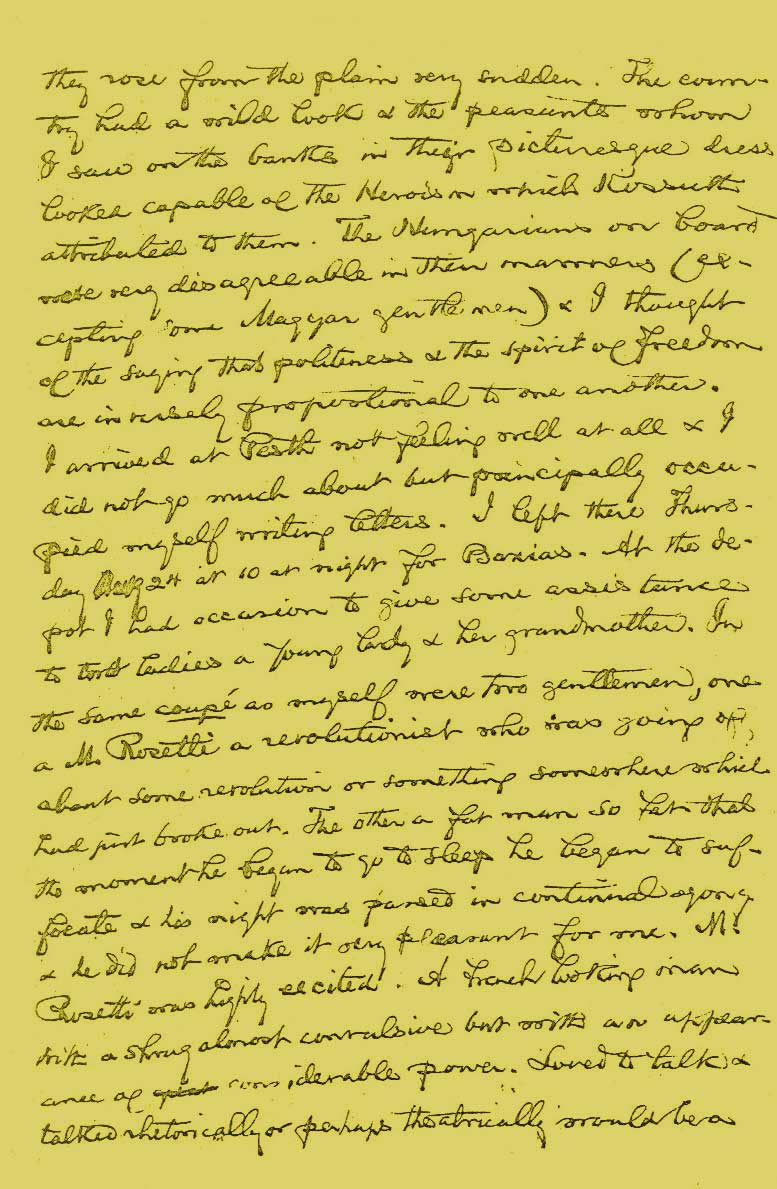 they rose from the plain very sudden. The coun-
try had a wild look & the peasants whom
I saw on the banks in their picturesque dress
looked capable of the Heroism which Kossuth
attributed to them. The Hungarians on board
were very disagreeable in their manners (ex-
cepting some Magyar gentlemen) & I thought
of the saying that politeness & the spirit of freedom
are inversely proportional to one another.
I arrived at Pesth not feeling well at all & I
did not go much about but principally occu-
pied myself writing letters. I left there Thurs-
day Aug 24 at 10 at night for Baxias. At the de-
pot I had occasion to give some assistance
to two ladies a young lady & her grandmother. In
the same coupé as myself were two gentlemen, one
a M. Rosetti a revolutionist who was going
about some revolution or something somewhere which
had just broke out. The other a fat man so fat that
the moment he began to go to sleep he began to suf-
focate & his night was passed in continual agony
& he did not make it very pleasant for me. M.
Rosetti was highly excited. A french looking man
with a shrug almost convulsive but with an appear-
ance of considerable power. Loved to talk &
talked rhetorically or perhaps theatrically would be a